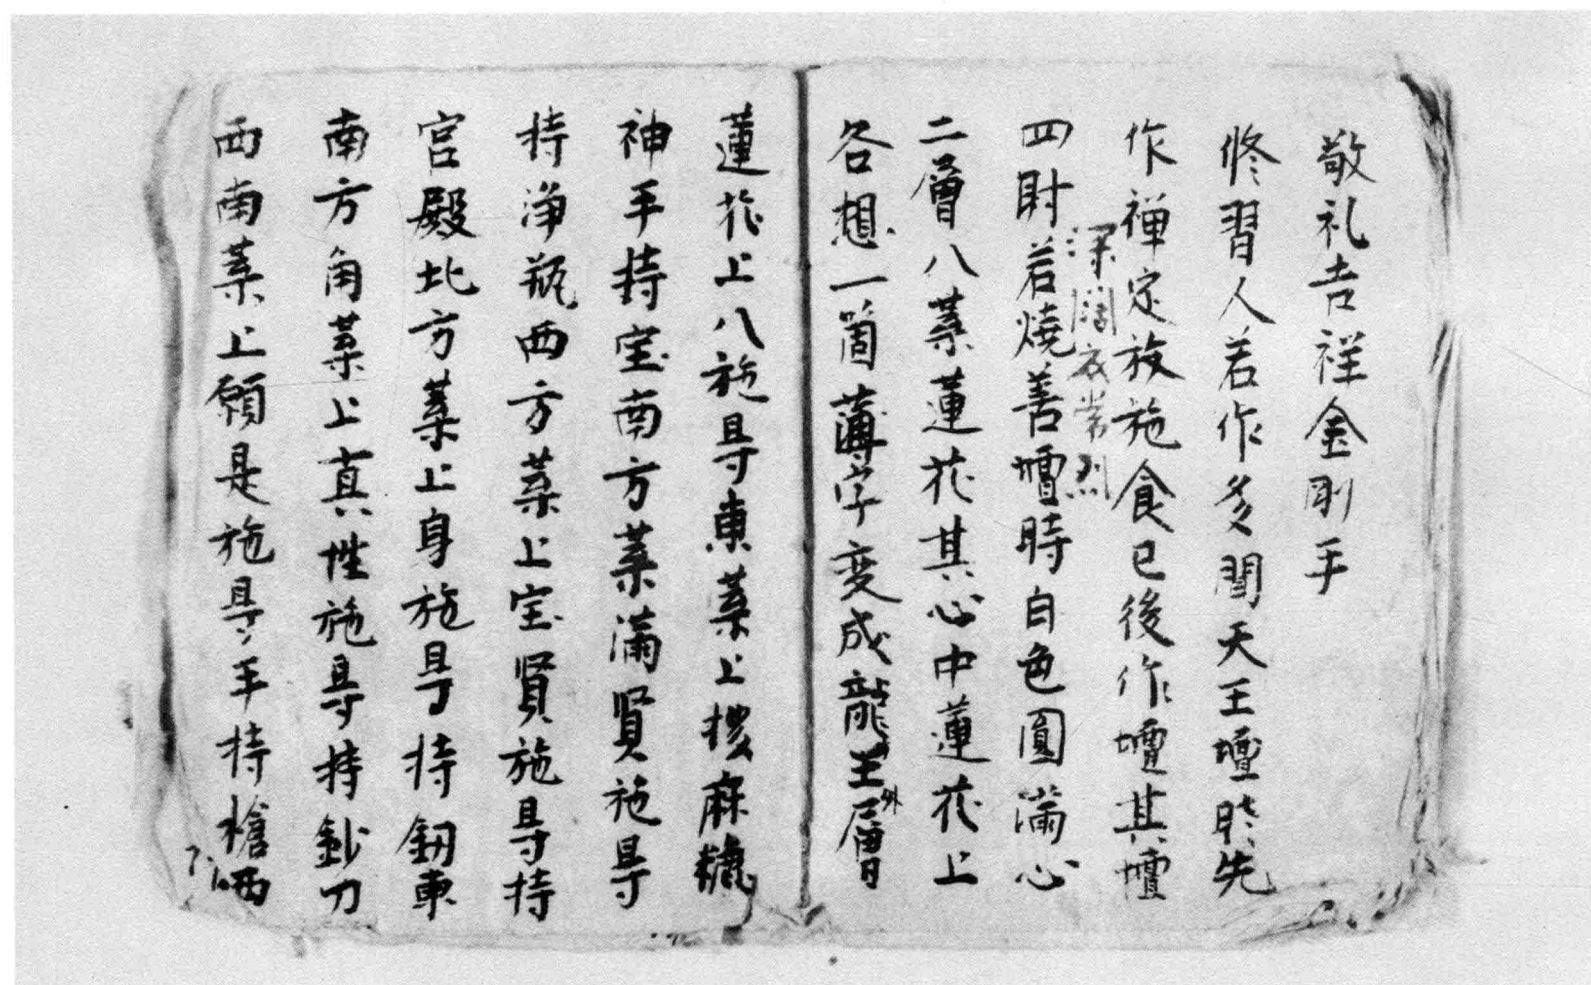 敬礼吉祥金剛手
修習人若作多聞天王壇時先
作禅定放施食已後作壇其壇
深闊衣常烈
四肘若燒善壇時白色圓滿心
二層八葉蓮花其心中蓮花上
各想一箇薄字变成龍王外層
蓮花上八施㝵東葉上麻
神手持宝南方葉滿賢施㝵
持浄瓶西方葉上宝賢施㝵持
宮殿北方葉上身施㝵持釰東
南方角葉上真性施㝵持鈔刀
西南葉上願是施㝵手持槍西